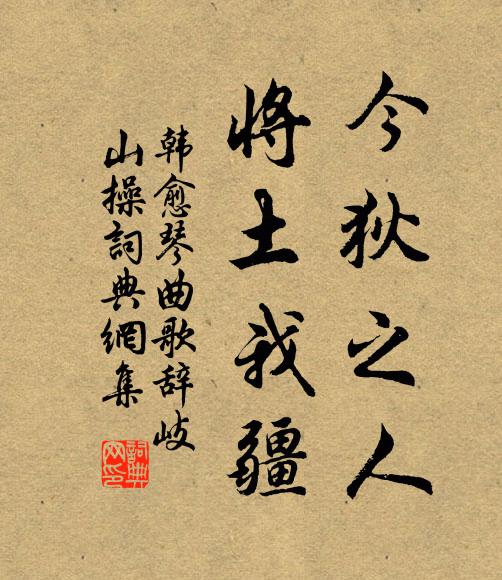 今狄之人
将土我疆
韩愈琴曲歌辞岐
山操詞典網集
詞典网印